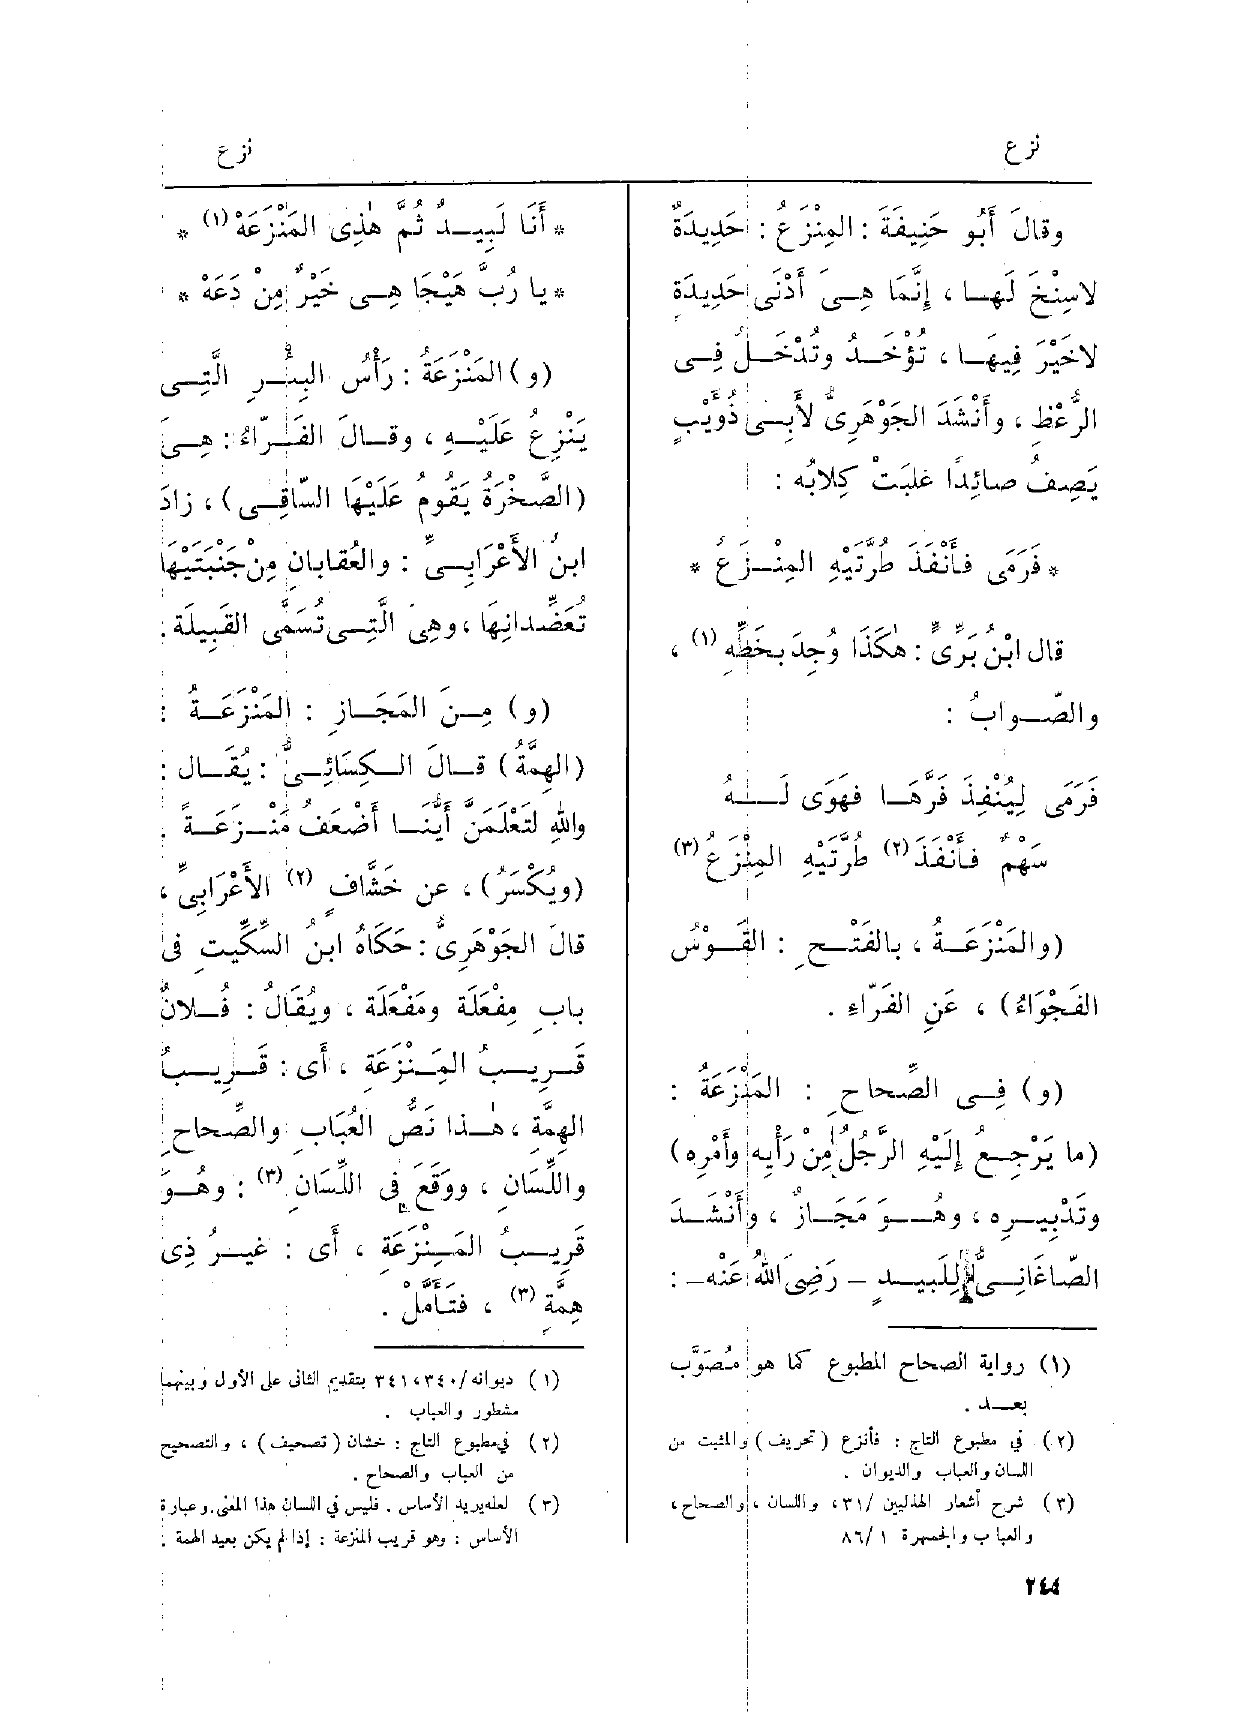 نزع
نزع
وقالَ أَبُو حَنِيفَةَ : المِنْزَعُ : حَدِيدَةٌ
لاسِنْخَ لَهـا ، إِنَّمَا هِـىَ أَدْنَى حَدِيدَةٍ
لاخَيْرَ فِيهَـا ، تُؤْخَـذُ وتُدْخَـلُ فِـى
الرُّعْظِ ، وأَنْشَدَ الجَوْهَرِىُّ لأَبِـى ذُؤَيْبٍ
يَصِفُ صائِدًا غلبَتْ كِلابُه :
* فَرَمَى فأَنْفَذَ طُرَّتَيْهِ المِنْـزَعُ *
قال ابْنُ بَرِّىٍّ : هٰكَذَا وُجِدَ بخَطِّهِ (١) ،
والصَّـوابُ :
فَرَمَى لِيُنْفِذَ فَرَّهَـا فهَوَى لَـهُ
سَهْمٌ فـأَنْفَذَ (٢) طُرَّتَيْهِ المِنْزَعُ (٣)
(والمَنْزَعَـةُ ، بالفَتْـحِ : القَـوْسُ
الفَجْوَاءُ) ، عَنِ الفَرّاءِ .
(و) فِـى الصِّحاحِ : المَنْزَعَةُ :
(ما يَرْجِـعُ إِلَيْهِ الرَّجُلُ مِنْ رَأْيِه وأَمْرِه)
وتَدْبِيـرِه ، وهُـوَ مَجَـازٌ ، وأَنْشَـدَ
الصّاغَانِـىُّ لِلَبِيـدٍ – رَضِىَ اللهُ عَنْه– :
(١) رواية الصحاح المطبوع كما هو مُصَوَّب
بعـد .
(٢) في مطبوع التاج : فأنزع (تحريف) والمثبت من
اللسان والعباب والديوان .
(٣) شرح أشعار الهذليين /٣١، واللسان ، والصحاح،
والعباب والجمهرة ١ /٨٦
* أَنَا لَبِيـدُ ثُمَّ هٰذِى المَنْزَعَهْ (١) *
* يا رُبَّ هَيْجَا هِـى خَيْرٌ مِنْ دَعَهْ *
(و) المَنْزَعَةُ : رَأْسُ البِئْـرِ الَّتِـى
يَنْزِعُ عَلَيْـهِ ، وقـالَ الفَـرّاءُ : هِـىَ
(الصَّخْرَةُ يَقُومُ عَلَيْها السّاقِـى) ، زادَ
ابنُ الأَعْرَابِـىِّ : والعُقابانِ مِنْ جَنَبَتَيْهَا
تُعَضِّدانِهَا ، وهِىَ الَّتِـى تُسَمَّى القَبِيلَة .
(و) مِـنَ المَجَـازِ : المَنْزَعَـةُ :
(الهِمَّةُ) قـالَ الـكِسَائِـىُّ : يُقَـال :
واللهِ لتَعْلَمَنَّ أَيُّنَـا أَضْعَفُ مَنْـزَعَـةً .
(ويُكْسَرُ) ، عن خَشَّافٍ (٢) الأَعْرَابِىِّ ،
قالَ الجَوْهَرِىُّ : حَكَاهُ ابنُ السِّكِّيتِ فى
بابِ مِفْعَلَة ومَفْعَلَة ، ويُقَالُ : فُـلانٌ
قَـرِيـبُ المَـنْزَعَةِ ، أَى : قَـرِيـبُ
الهِمَّةِ ، هٰـذا نَصُّ العُبَابِ والصِّحاحِ
واللِّسَانِ ، ووَقَعَ فى اللِّسَانِ (٣) : وهُـوَ
قَرِيـبُ المَـنْزَعَةِ ، أَى : غيـرُ ذِى
هِمَّةٍ (٣) ، فتَـأَمَّلْ .
(١) ديوانه/٣٤٠، ٣٤١ بتقديم الثانى على الأول وبينهما
مشطور والعباب .
(٢) في مطبوع التاج : خشان (تصحيف) ، والتصحيح
من العباب والصحاح .
(٣) لعله يريد الأساس . فليس في اللسان هذا المعنى.وعبارة
الأساس : وهو قريب المنزعة : إذا لم يكن بعيد الهمة .
٢٤٤